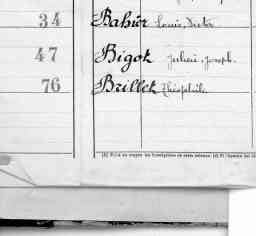 34 Bahier Louis, Victor
47 Bigot Julien, Joseph
76 Brillet Théophile